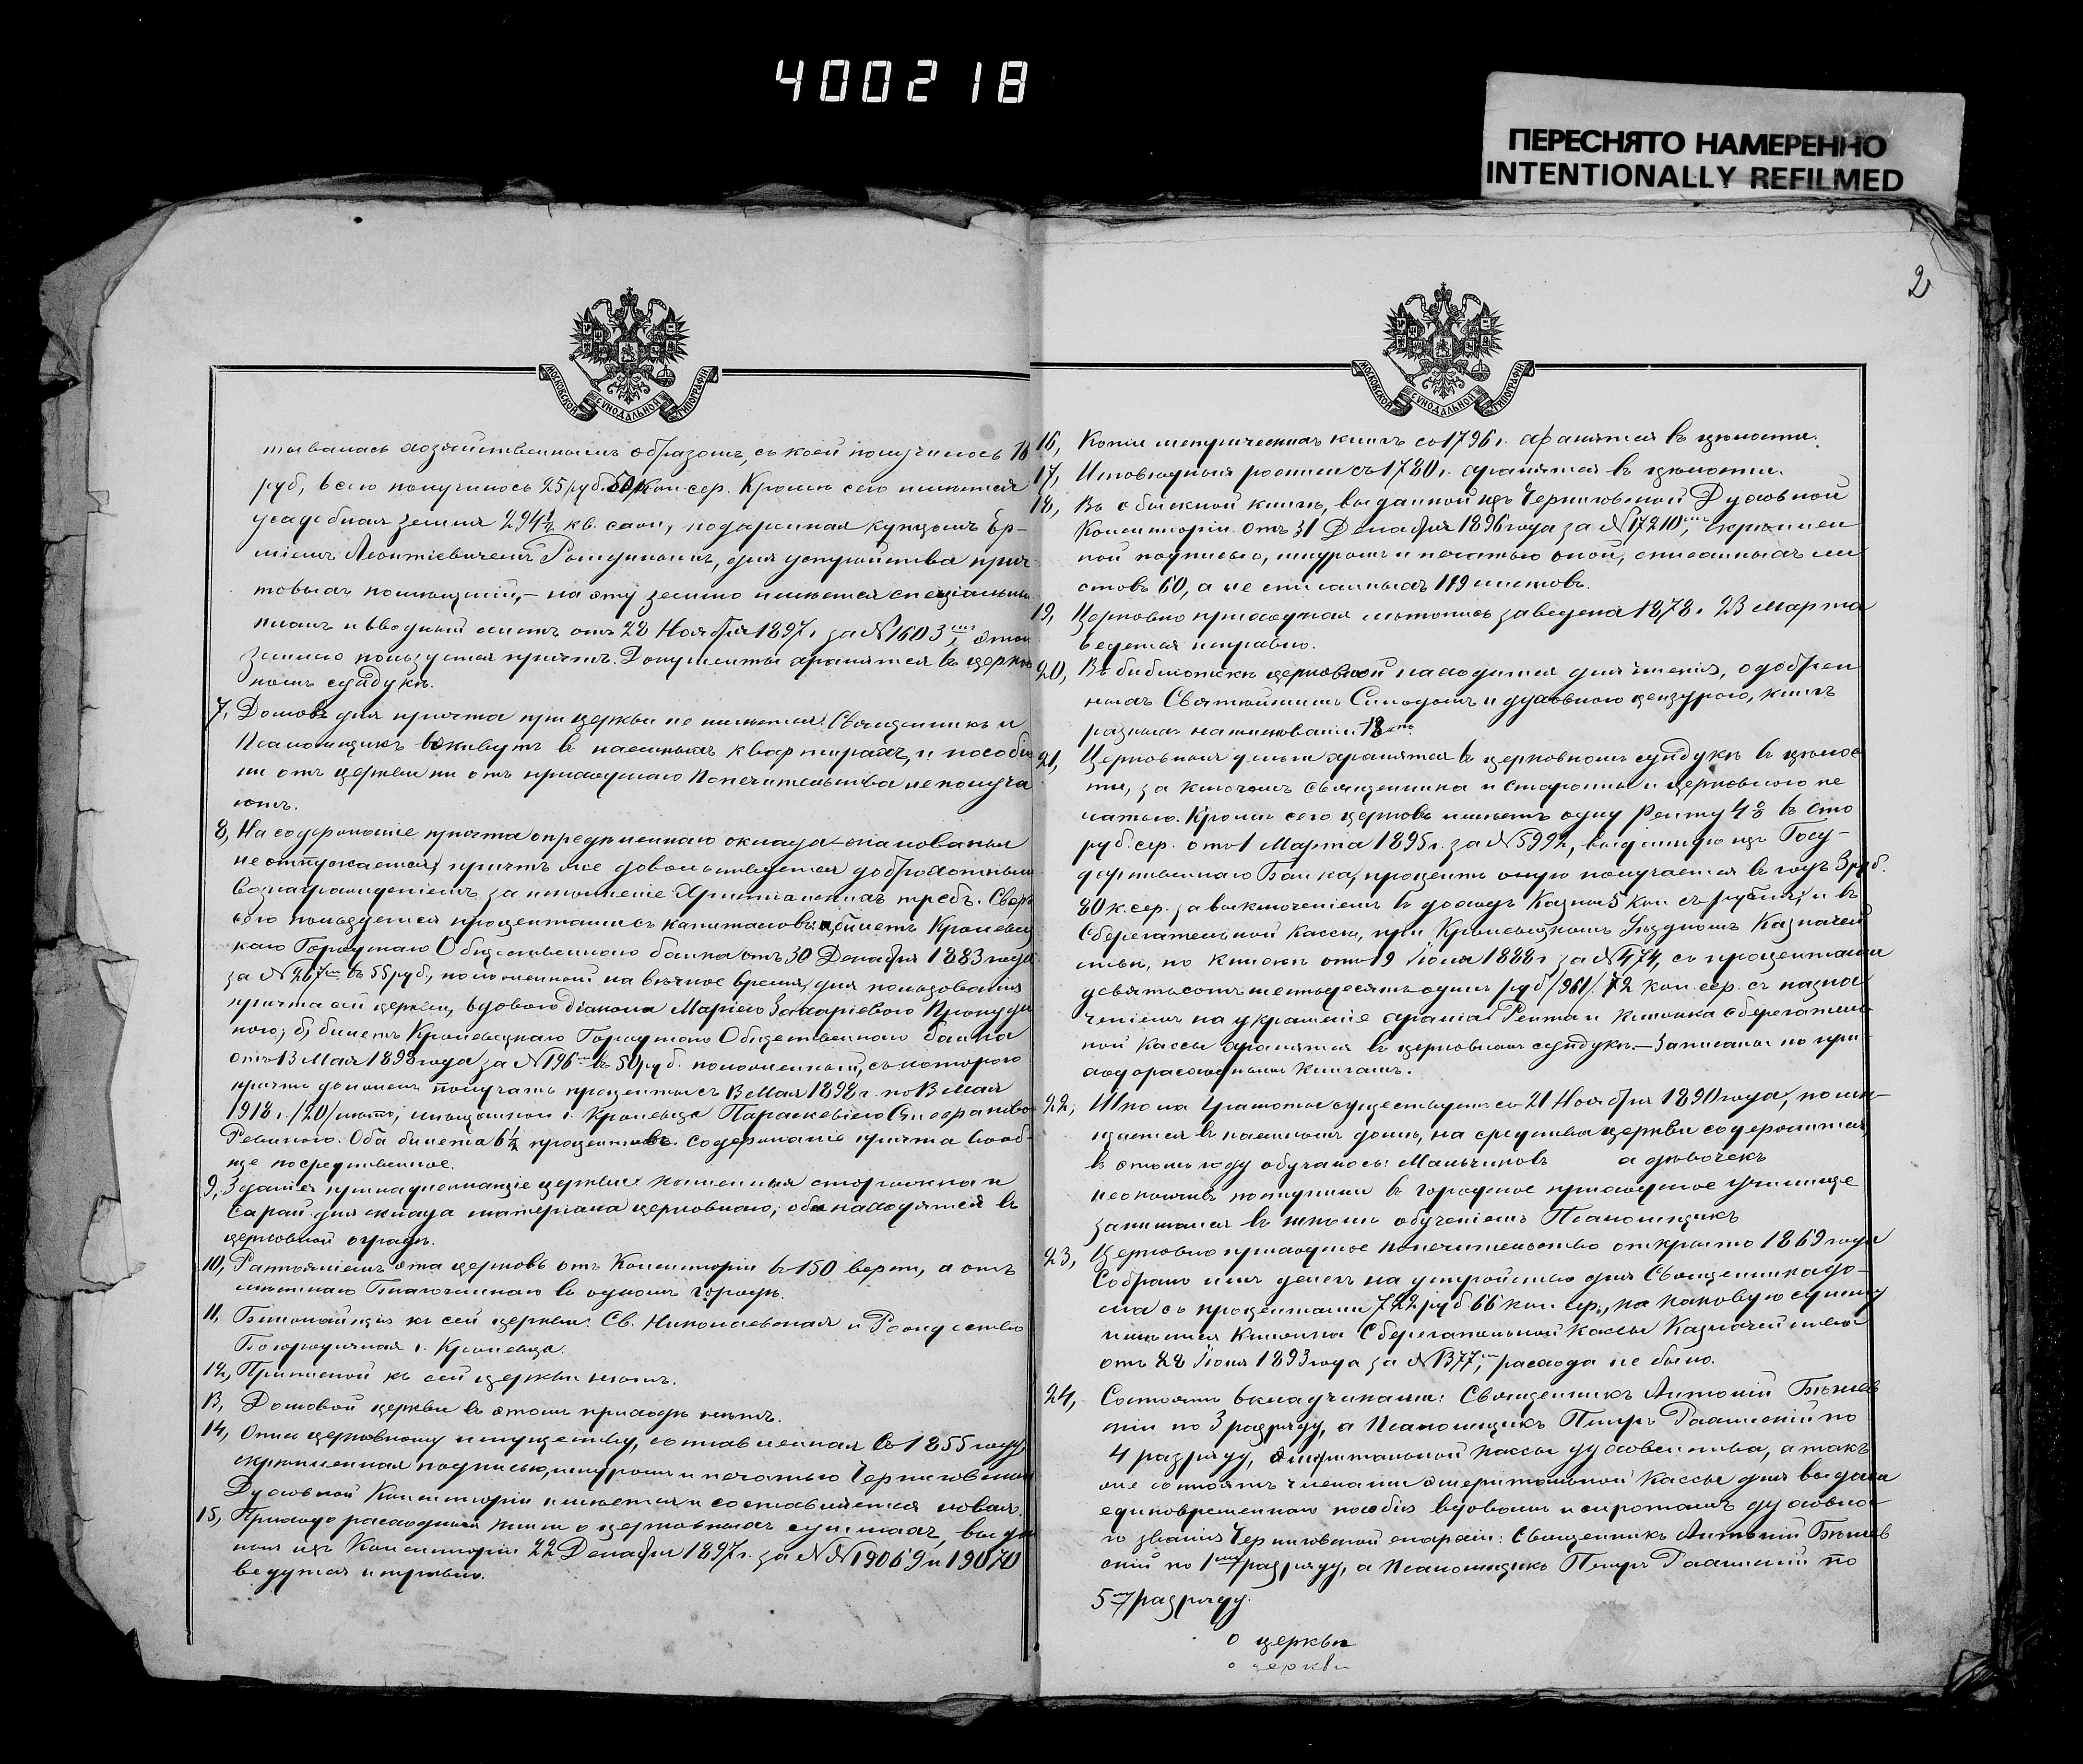 400218
ПЕРЕСНЯТО НАМЕРЕННО
INTENTIONALLY REFILMED
2
МОСКОВСКОЙ СѴНОДАЛЬНОЙ ТИПОГРАФІИ
тывалась хозяйственнымъ образомъ, съ коей получилось 16
руб., всего получилось 25 руб. 50 коп. сер. Кромѣ сего имѣется
усадебная земля 294½ кв. саж., подаренная купцомъ Ер-
міемъ Леонтіевичемъ, для устройства прич
товыхъ помѣщеній, – на эту землю имѣется спеціальный
планъ и вводный листъ отъ 28 Ноября 1897 г. за № 1603, этою
землею пользуется причтъ. Документы хранятся въ церков
номъ сундукѣ.
7, Домовъ для причта при церкви не имѣется: Священникъ и
Псаломщикъ живутъ въ наемныхъ квартирахъ, и пособія
ни отъ церкви ни отъ приходскаго Попечительства не получа
ютъ.
8, На содержаніе причта опредѣленнаго оклада жалованья
не отпускается, причтъ же довольствуется доброхотнымъ
вознагражденіемъ за исполненіе Христіанскихъ требъ. Сверхъ
сего пользуется процентами съ капиталовъ: а, билетъ Кролевец
каго Городскаго Общественнаго банка отъ 30 Декабря 1883 года
за № 267 въ 55 руб., положенной на вѣчное время, для пользованія
причта сей церкви, вдовою Діакона Маріею Захаріевою
б, билетъ Кролевецкаго Городскаго Общественнаго банка
отъ 13 Мая 1898 года за № 196 въ 50 руб. положенный, съ котораго
причтъ долженъ получать проценты съ 13 Мая 1898 г. по 13 Мая
1918 г. /20/ лѣтъ, мѣщанкой г. Кролевца Параскевіею
Оба билета 6½ процентовъ. Содержаніе причта вооб-
ще посредственное.
9, Зданія принадлежащіе церкви: каменная сторожка и
сарай для склада матеріала церковнаго, оба находятся въ
церковной оградѣ.
10, Разстояніемъ эта церковь отъ Консисторіи въ 150 верст., а отъ
мѣстнаго Благочиннаго въ одномъ городѣ.
11, Ближайшія къ сей церкви: Св. Николаевская и Рождество
Богородичная г. Кролевца.
12, Приписной къ сей церкви нѣтъ.
13, Домовой церкви въ этомъ приходѣ нѣтъ.
14, Опись церковному имуществу, составленная въ 1855 году,
скрѣпленная подписью, шнуромъ и печатью Черниговской
Духовной Консисторіи имѣется и составляется новая.
15, Приходо расходныя книги о церковныхъ суммахъ, выдан
ныя изъ Консисторіи 22 Декабря 1897 г. за №№ 19069 и 19070
ведутся исправно.
МОСКОВСКОЙ СѴНОДАЛЬНОЙ ТИПОГРАФІИ
16, Копіи метрическихъ книгъ съ 1796 г. хранятся въ цѣлости.
17, Исповѣдныя росписи съ 1780 г. хранятся въ цѣлости.
18, Въ обыскной книгѣ, выданной изъ Черниговской Духовной
Консисторіи отъ 31 Декабря 1896 года за № 17210, скрѣплен
ной подписью, шнуромъ и печатью оной, списанныхъ ли
стовъ 60, а не списанныхъ 119 листовъ.
19, Церковно приходская лѣтопись заведена 1878 г. 23 Марта
ведется исправно.
20, Въ библіотекѣ церковной находится для чтенія, одобрен
ныхъ Святѣйшимъ Синодомъ и духовною цензурою, книгъ
разныхъ наименованій 18
21, Церковныя деньги хранятся въ церковномъ сундукѣ въ цѣлос
ти, за ключемъ священника и старосты и церковною пе
чатью. Кромѣ сего церковь имѣетъ одну Ренту 4% въ сто
руб. сер. отъ 1 Марта 1895 г. за № 5992, выданную изъ Госу-
дарственнаго Банка, процентъ оную получается въ годъ 3 руб.
80 к. сер. за выключеніемъ въ доходъ Казны 5 коп. съ рубля, и въ
Сберегательной Кассѣ, при Кролевецкомъ Уѣздномъ Казначей
ствѣ, по книжкѣ отъ 19 Іюля 1888 г. за № 474, съ процентами
девятьсотъ шестьдесятъ одинъ руб /961/ 72 коп. сер. съ назна
ченіемъ на украшеніе храма. Рента и Книжка сберегатель
ной Кассы хранятся въ церковномъ сундукѣ. – Записаны по при
ходорасходнымъ книгамъ.
22, Школа Грамоты существуетъ съ 21 Ноября 1890 года, помѣ-
щается въ наемномъ домѣ, на средства церкви содержится,
въ этомъ году обучалось: Мальчиковъ а дѣвочекъ
неокончивъ поступили въ городское приходское училище
занимался въ школѣ обученіемъ Псаломщикъ
23, Церковно приходское попечительство открыто 1869 года
Собрано имъ денегъ на устройство для Священника до-
ма съ процентами 722 руб 66 коп. сер., на каковую сумму
имѣется книжка Сберегательной Кассы Казначейства
отъ 22 Іюня 1893 года за № 1377, расхода не было.
24, Состоятъ вкладчиками: Священникъ Антоній
по 3 разряду, а Псаломщикъ Петръ по
4 разряду, эмеритальной кассы духовенства, а такъ
же состоятъ членами эмеритальной Кассы для выдачи
единовременнаго пособія вдовамъ и сиротамъ духовна
го званія Черниговской епархіи: Священникъ Антоній
по 1му разряду, а Псаломщикъ Петръ по
5му разряду.
о церкви
о церкви